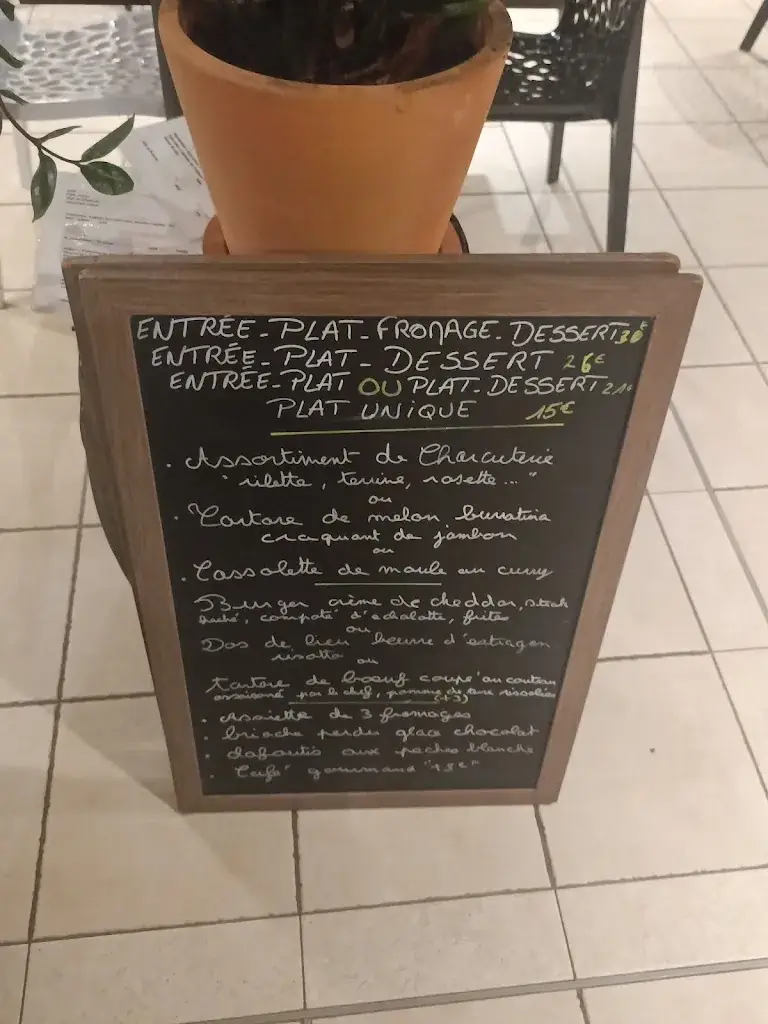 ENTRÉE - PLAT - FROMAGE - DESSERT 30€
ENTRÉE - PLAT - DESSERT 26€
ENTRÉE - PLAT OU PLAT - DESSERT 21€
PLAT UNIQUE 15€
. Assortiment de Charcuterie
" rilette, terrine, rosette ... "
ou
. Tartare de melon, burratina
craquant de jambon
ou
. Cassolette de moule au curry
Burger crème de cheddar, steak
haché, compoté d'echalotte, frites
ou
Dos de lieu beurre d'estragon
risotto ou
tartare de boeuf coupé au couteau
assaisoné par le chef, pomme de terre rissolées
(+3)
. Assiette de 3 fromages
. brioche perdu glace chocolat
. clafoutis aux peches blanche
. Café gourmand